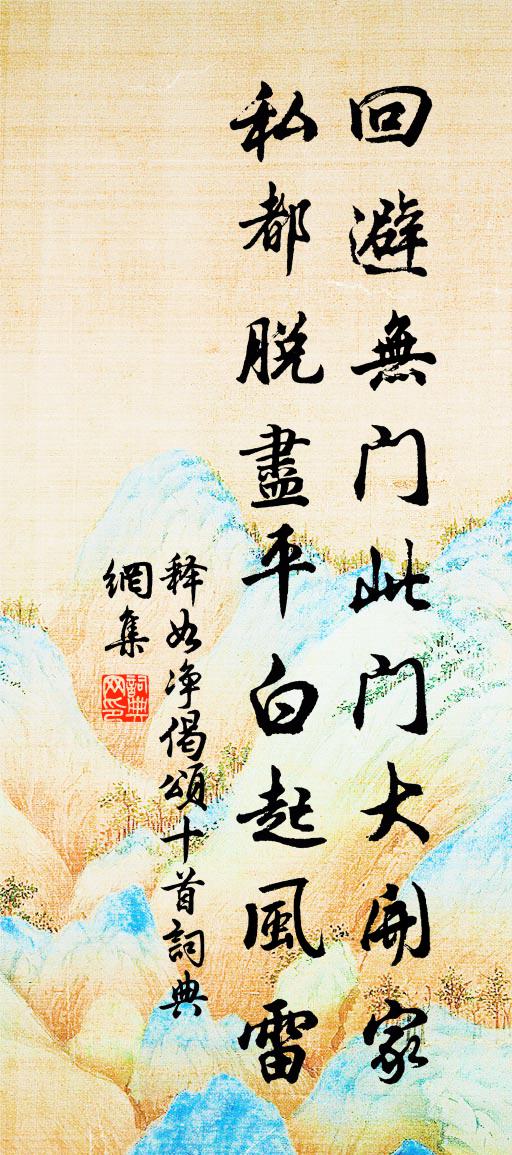 回避無门此门大開家
私都脱盡平白起風雷
释如净偈頌十首詞典
網集
詞典
网印